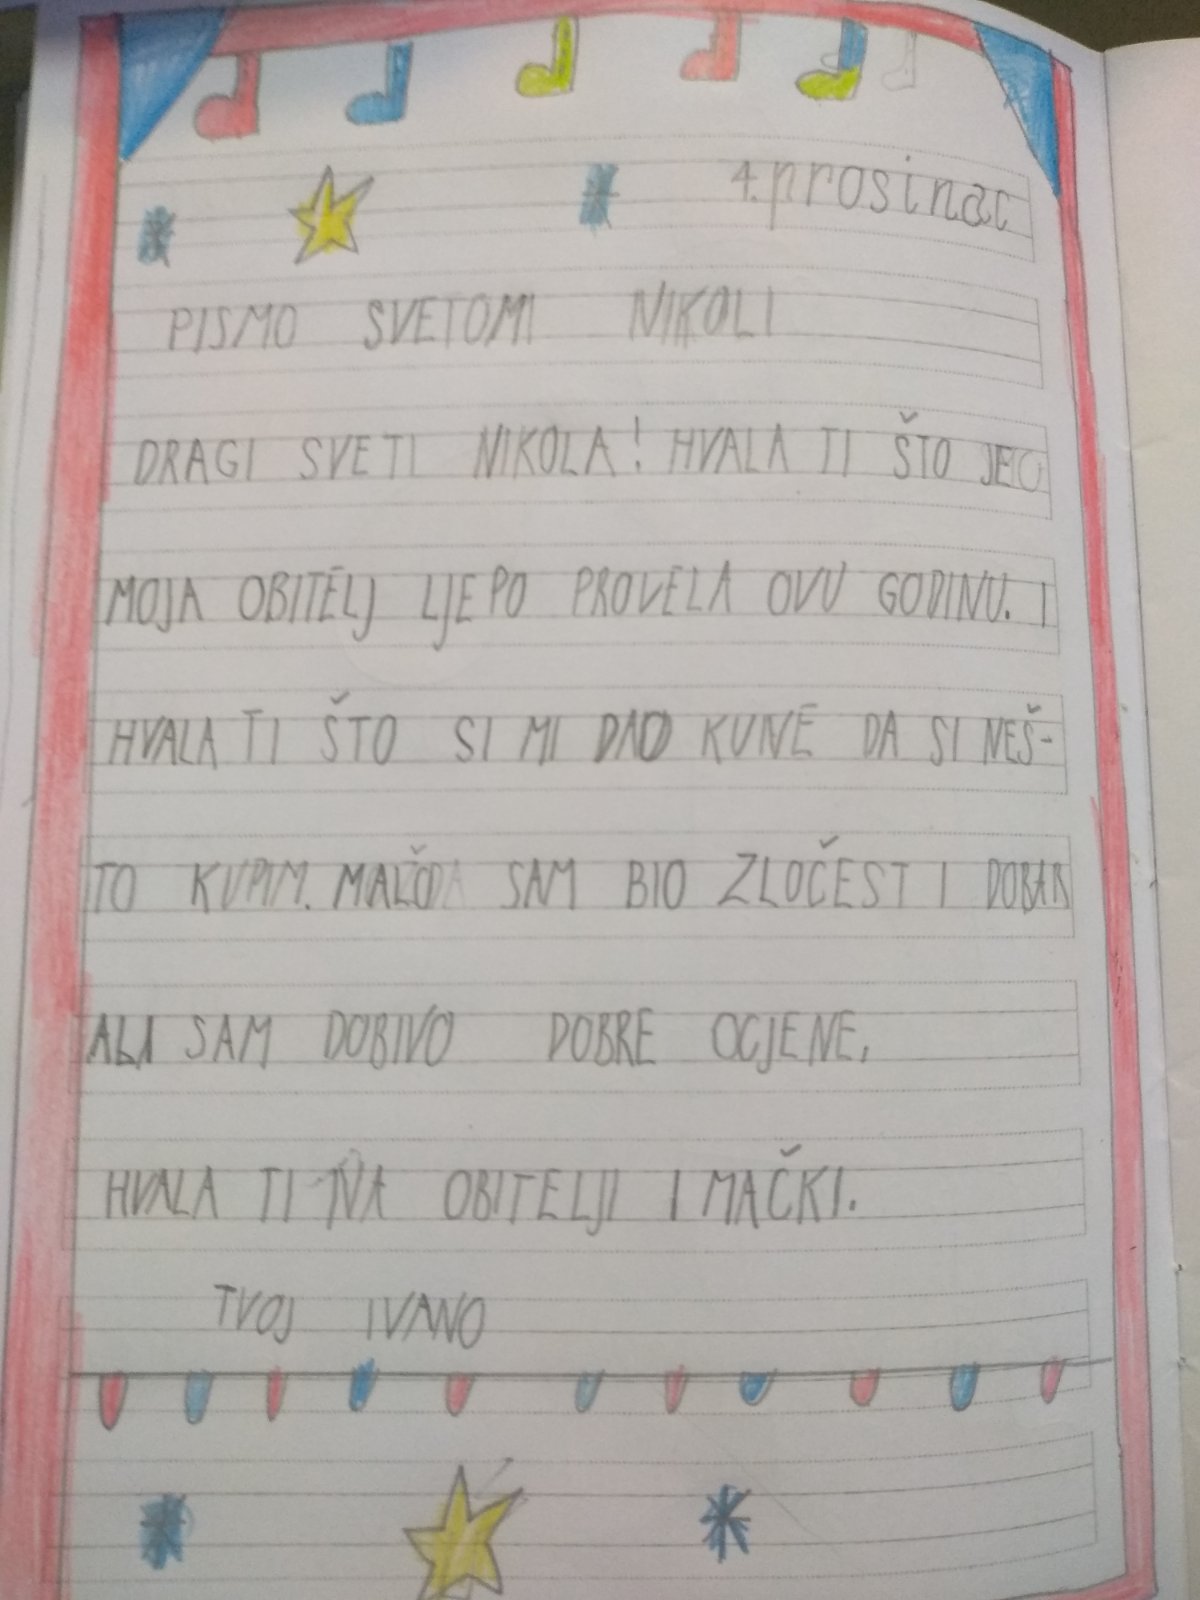 4. prosinac
PISMO SVETOMI NIKOLI
DRAGI SVETI NIKOLA! HVALA TI ŠTO JE
MOJA OBITELJ LJEPO PROVELA OVU GODINU. I
HVALA TI ŠTO SI MI DAO KUNE DA SI NEŠ-
TO KUPIM. SAM BIO ZLOČEST I DOBAR
ALI SAM DOBIVO DOBRE OCJENE,
HVALA TI NA OBITELJI I MAČKI.
TVOJ IVANO